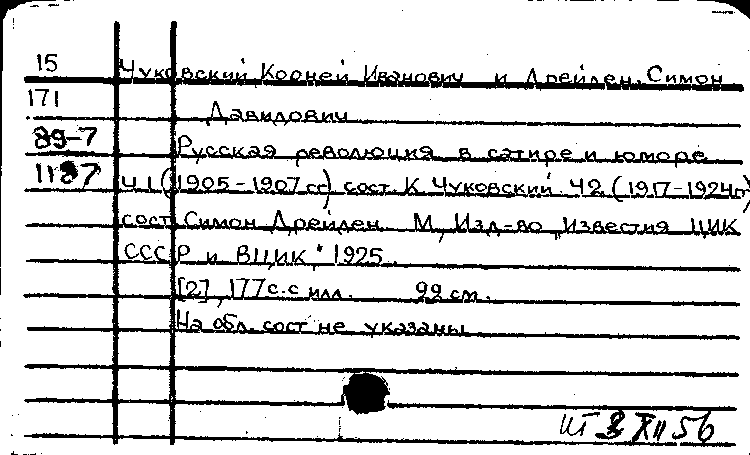 15 Чуковский Корней Иванович и Дрейден, Симон
171 Давидович
89-7 Русская революция в сатире и юморе
1187 Ч I (1905-1907 гг) сост. К Чуковский. Ч 2 (1917-1924 гг)
сост Симон Дрейден. М, Изд-во „Известия ЦИК
СССР и ВЦИК," 1925.
[2], 177 с. с илл. 22 см.
На обл. сост не указаны
XII 56